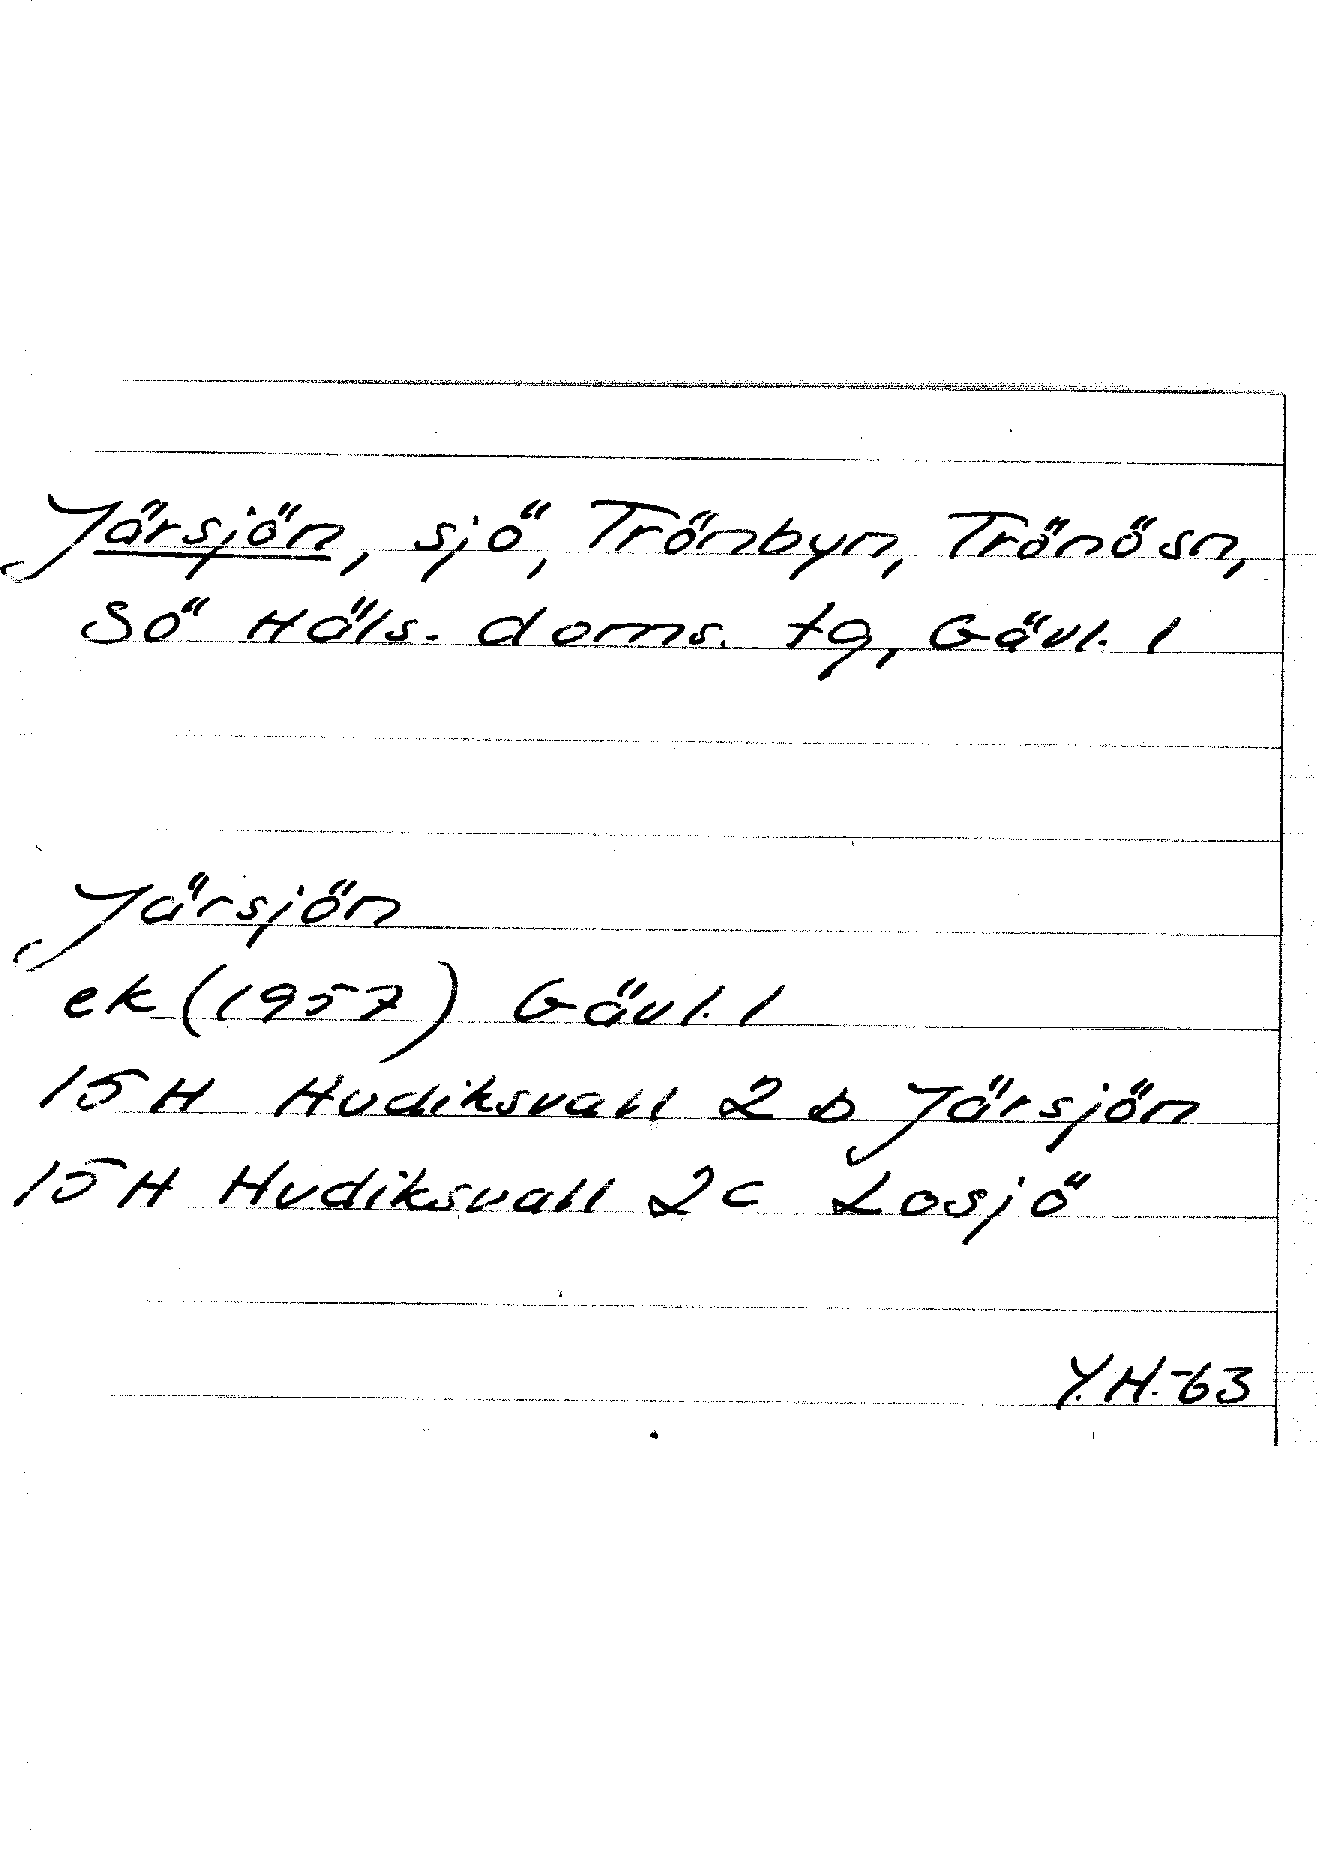 Järsjön, sjö, Trönbyn, Trönösn,
Sö Häls. doms. tg, Gävl. l
Järsjön
ek (1957) Gävl. l
15 H Hudiksvall 2 b Järsjön
15 H Hudiksvall 2 c Losjö
Y.H.-63